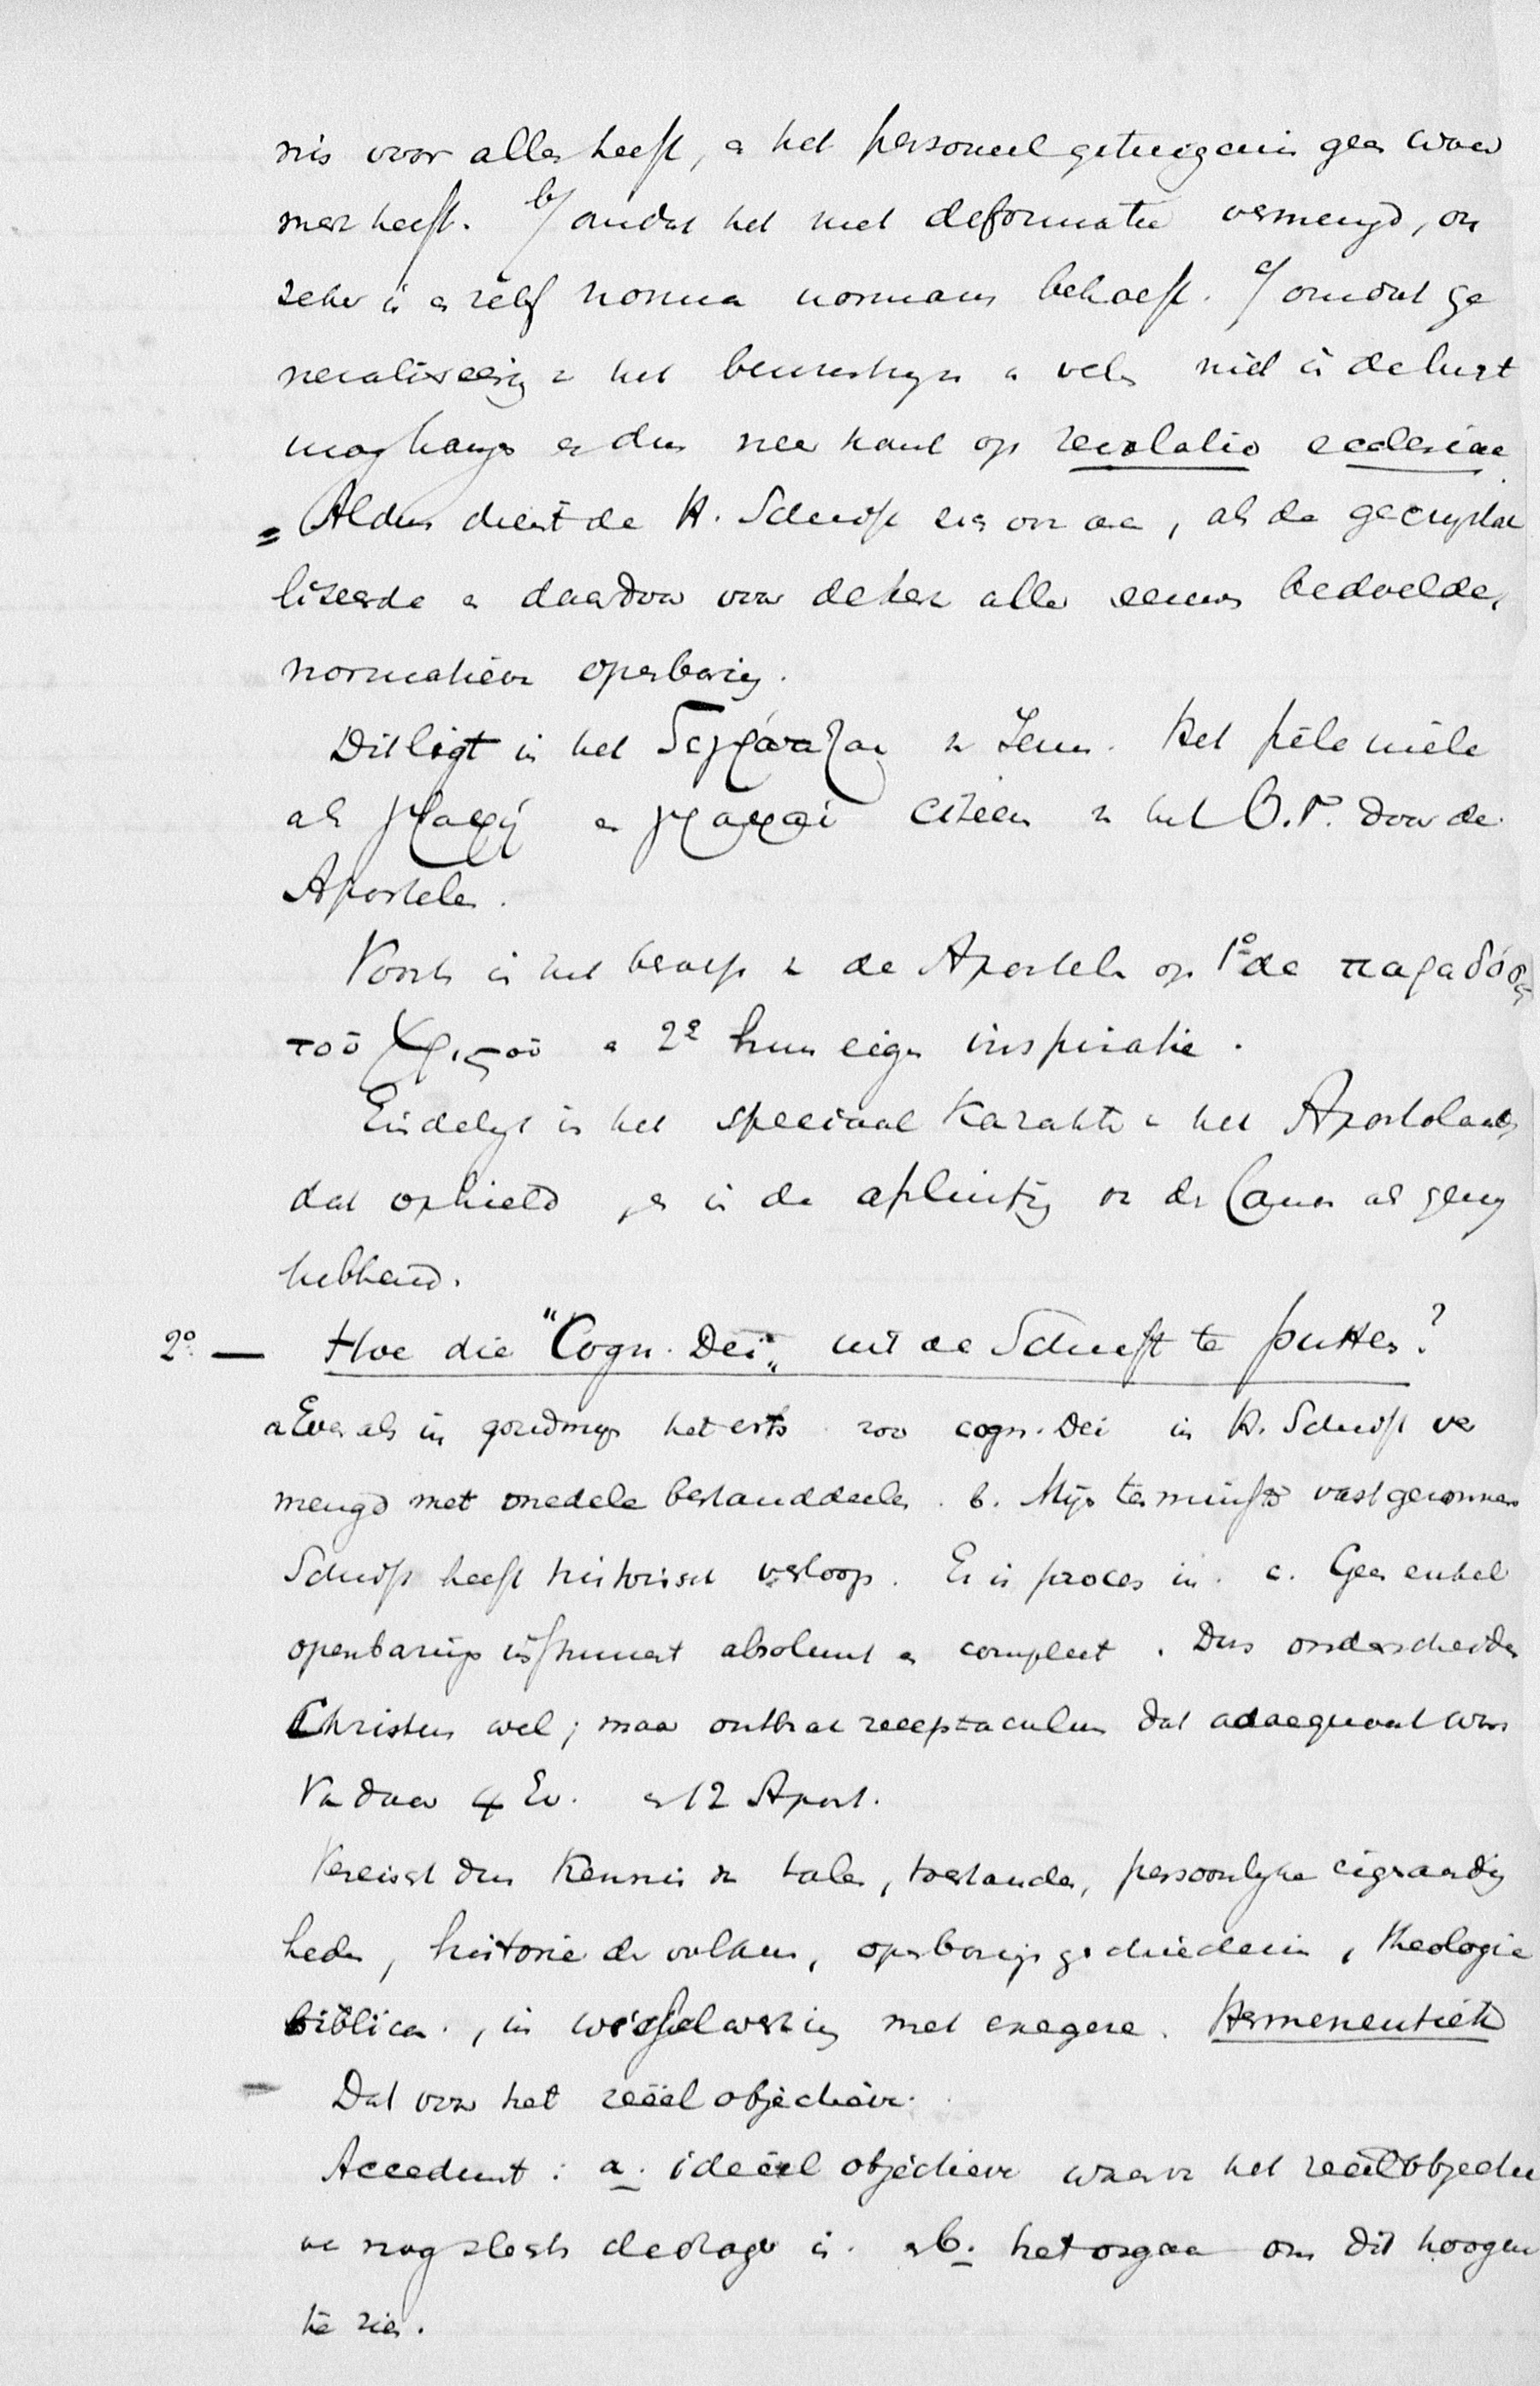 nis voor allen heeft, en het personeel getuigenis geen waar
merk heeft. b/ omdat het met deformatie vermengd, on
zeker is en zelf norma normans behoeft. c/ omdat ge
neraliseering v het bewustzijn v velen niet in de lucht
mag hangen en dus neer komt op revelatio ecclesiae
= Aldus dient de H. Schrift zich aan ons aan, als de gecrystal
liseerde en daardoor voor de kerk aller eeuwen bedoelde,
normatieve openbaring.
Dit ligt in het γέγραπται v Jezus. Het
als γραφή en γραφαί citeeren v het O.T. door de
Apostelen.
Voorts in het beroep v de Apostelen op 1º de παράδοσις
τοῦ Χριστοῦ en 2º hun eigen inspiratie.
Eindelijk in het speciaal karakter v het Apostolaat,
dat ophield, en in de afsluiting v de Canon als
hebbend.
2º. — Hoe die "Cogn. Dei" uit de Schrift te putten?
a Even als in goudmijn het erts zoo cogn. Dei in H. Schrift ver
mengd met onedele bestanddeelen. b. Mijn ten minste vast geronnen
Schrift heeft historisch verloop. Er is proces in. c. Geen enkel
openbarings instrument absoluut en compleet. Dus onderscheiden
Christus wel; maar ontbrak receptaculum dat adaequaat was
Van daar 4 Ev. en 12 Apost.
Vereischt dus kennis v talen, toestanden, persoonlijke eigenaardig
heden, historie der volken, openbarings geschiedenis, theologia
biblica, in wisselwerking met exegese. Hermeneutiek
Dat voor het reëel objectieve.
Accedunt: a. ideëel objectieve waarvan het reëel objectie
ve nog slechts de drager is. en b. het orgaan om dit hoogere
te zien.